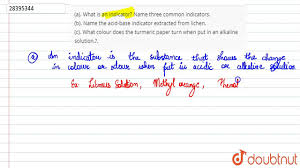 28395344
(a). What is an indicator? Name three common indicators.
(b). Name the acid-base indicator extracted from lichen.
(c). What colour does the turmeric paper turn when put in an alkaline
solution?.
(a) An indicator is the substance that shows the change
in colour or odour when put in acidic or alkaline solution
Ex: Litmus Solution, Methyl orange, Phenol
doubtnut